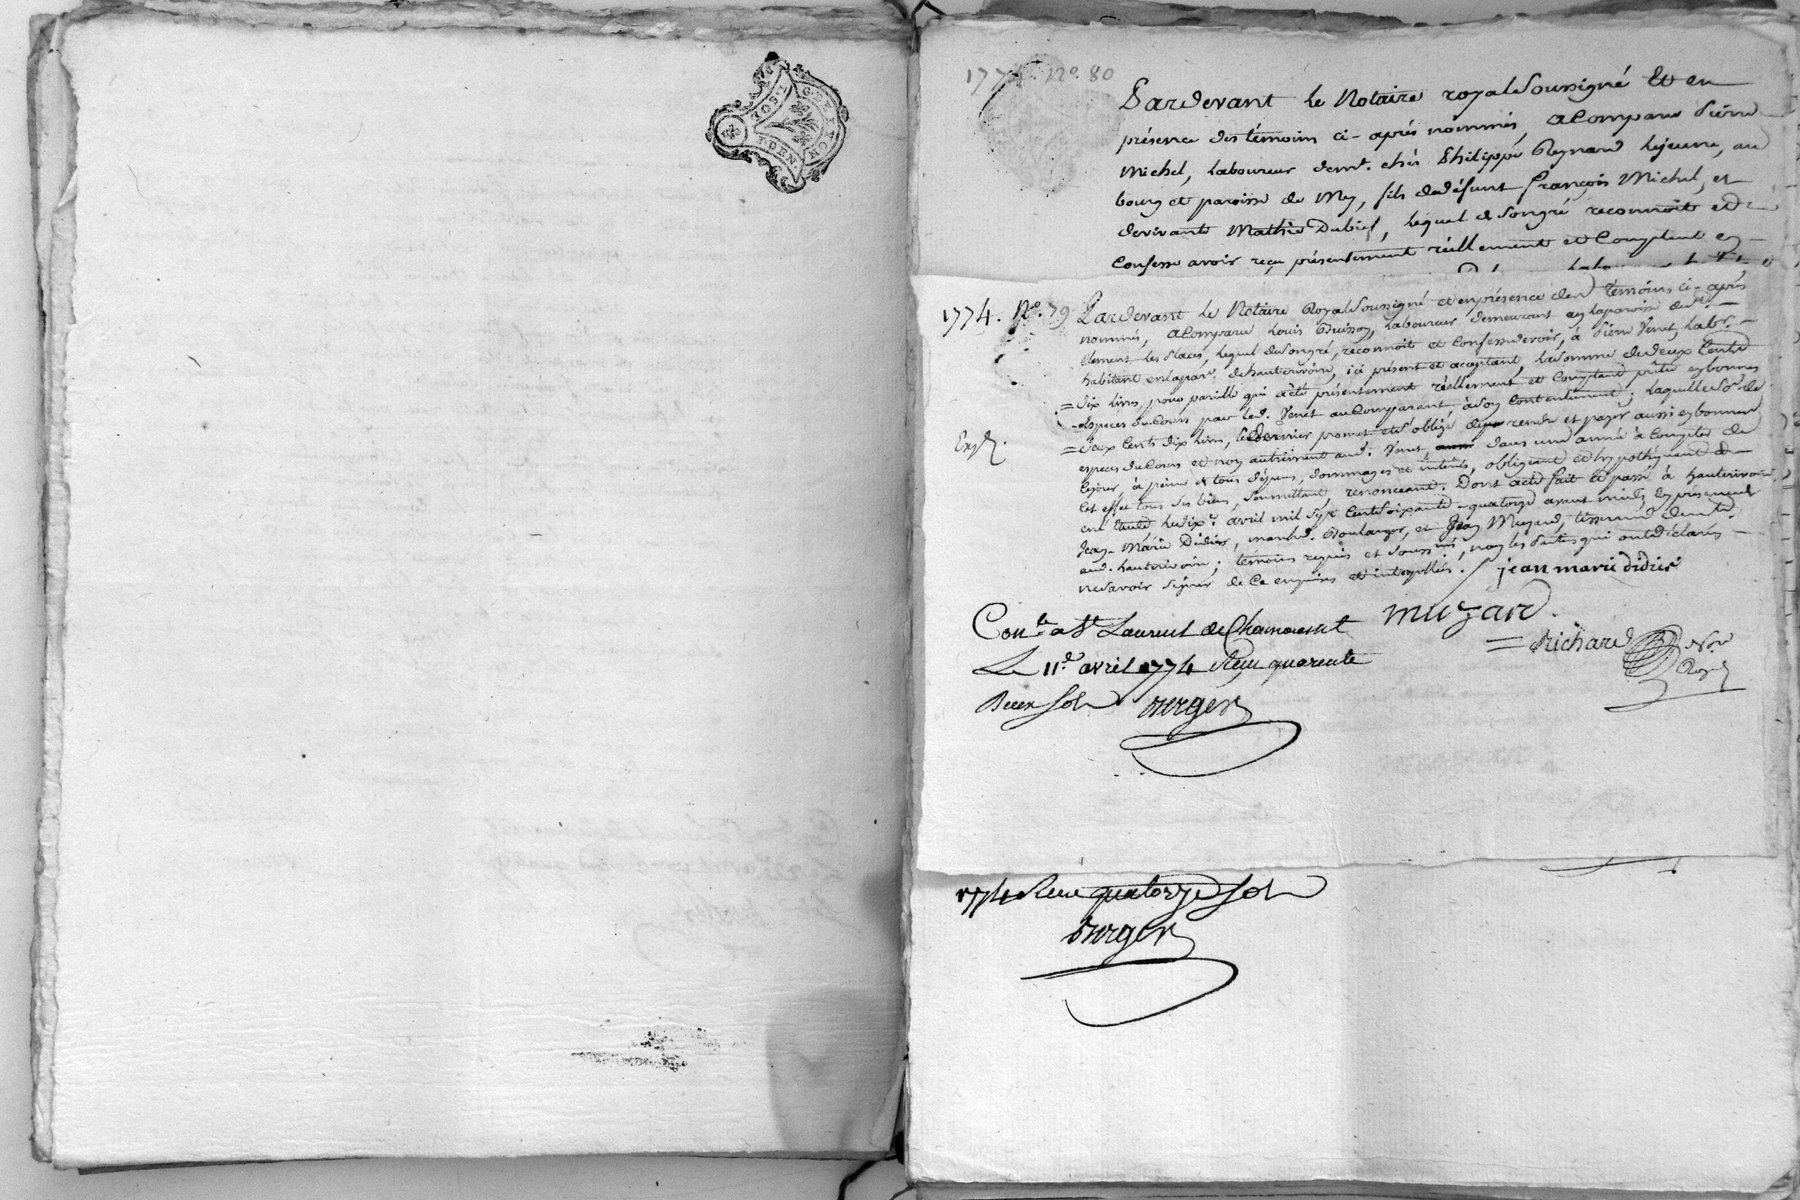 1774. N°. 80
Pardevant le Notaire royal Soussigné Et en
présence des témoins ci-après nommés, a Comparu Pierre
Michel, Laboureur demt. chés Philippe Reynard Lejeune, au
bourg et paroisse de Mey, fils de défunt François Michel, et
de vivante Mathie Dubief, Lequel de Son gré reconnoit et
Confesse avoir reçu présentement réellement et Comptant en
1774. N°. 79 Pardevant le Notaire Royal Soussigné et en présence des témoins ci-après
nommés, a Comparu Louis Buisson, Laboureur demeurant en la paroisse de St.
Clement les Places, Lequel de Son gré, reconnoit et Confesse devoir, à Pierre Venet, Labr.
habitant en la par. de hauterivoire, ici présent et acceptant, la Somme de deux Cents
= dix livres, pour pareille qui a été présentement réellement et Comptant prêtée en bonnes
-espèces du Cours par led. Venet au Comparant, à Son Contentement; Laquelle Se. de
= deux Cents dix livres, Ce dernier promet et S'oblige de rendre et payer aussi en bonnes
espèces du Cours et non autrement aud. Venet, dans une année à Compter de
Cejour, à peine de tous dépens, dommages et intérêts, obligeant et hypothéquant à
Cet effet tous Ses biens, Soumettant, renonceant. Dont acte fait et passé à hauterivoire
en l'étude le dix. avril mil Sept Cent Soixante-quatorze avant midi, En présence de
Jean-Marie Didier, marchd. Boulanger, et Jean Muzard, tisserand demts.
aud. hauterivoire; témoins requis et Soussignés, non les parties qui ont déclaré
ne Savoir Signer de Ce enquises et interpellées.
jean marie didier
muzard
= Richard Nore
Royal
Conte. a St Laurent de Chamousset
Le 11e. avril 1774 Reçu quarente
Deux Sols Berger
1774 Reçu quatorze Sols
Berger